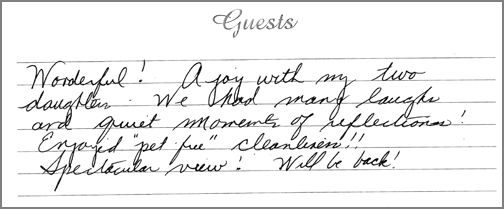 Guests
Wonderful! A joy with my two
daughters. We had many laughs
and quiet moments of reflections!
Enjoyed "pet free" cleanliness!!
Spectacular view! Will be back!